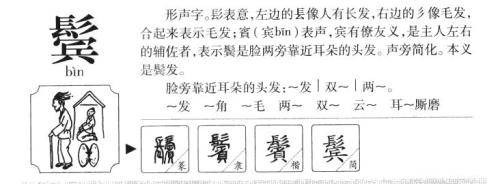 鬓
bìn
形声字。髟表意,左边的镸像人有长发,右边的彡像毛发,
合起来表示毛发;賓(宾bīn)表声,宾有僚友义,是主人左右
的辅佐者,表示鬓是脸两旁靠近耳朵的头发。声旁简化。本义
是鬓发。
脸旁靠近耳朵的头发:~发│双~│两~。
~发 ~角 ~毛 两~ 双~ 云~ 耳~厮磨
鬢 篆
鬢 隶
鬢 楷
鬓 简